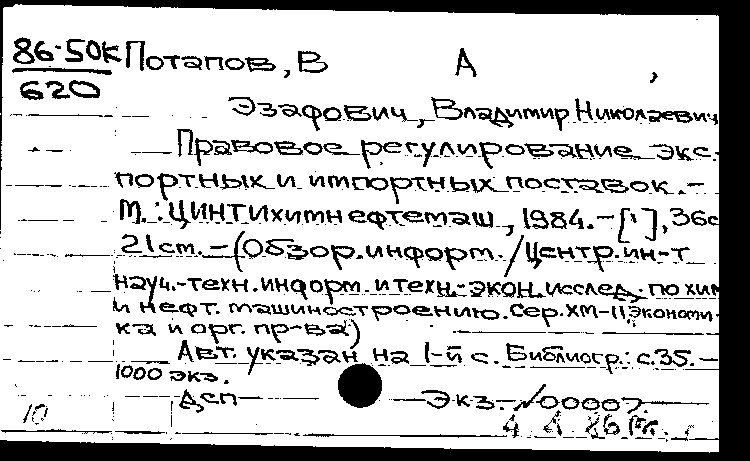 86-50К Потапов, В А ,
620
Эзафович, Владимир Николаевич
Правовое регулирование экс-
портных и импортных поставок. –
М.: ЦИНТИхимнефтемаш, 1984. – [1], 36с
21 см. – (Обзор. информ. / Центр. ин-т
науч.-техн. информ. и техн.-экон. исслед. по хим
и нефт. машиностроению. Сер. ХМ-11, Экономи-
ка и орг. пр-ва)
Авт. указан на 1-й с. Библиогр.: с.35. –
1000 экз.
ДСП Экз. № 00007.
10